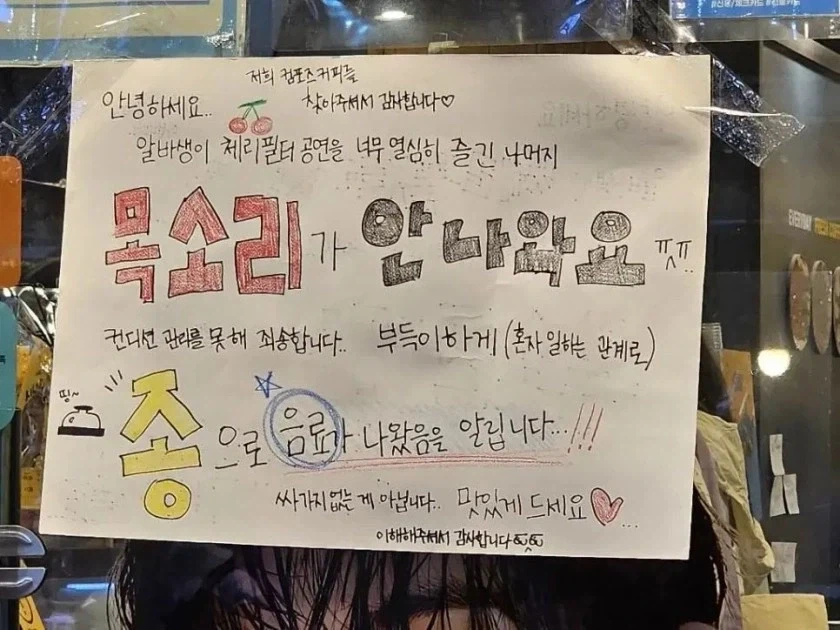 #신용/체크카드 #간편카드
안녕하세요.. 저희 컴포즈커피를
찾아주셔서 감사합니다♡
알바생이 체리필터 공연을 너무 열심히 즐긴 나머지
목소리가 안 나와요 ㅠㅅㅠ..
컨디션 관리를 못해 죄송합니다.. 부득이하게 (혼자 일하는 관계로)
띵~
종으로 음료가 나왔음을 알립니다...!!!
싸가지없는 게 아닙니다.. 맛있게 드세요♡...
이해해주셔서 감사합니다
EVERYDAY